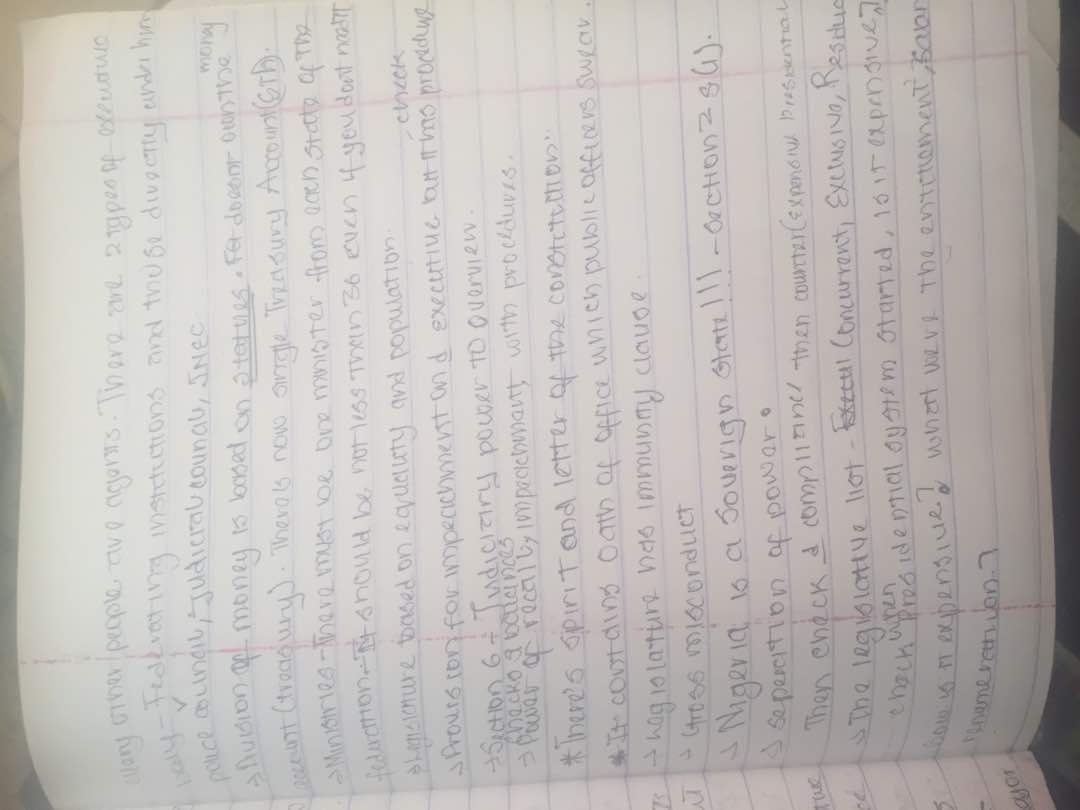 other people are agents. There are 2 types of executive
body - Federating institutions and tribe directly under him
police council, Judicial council, INEC
money
→ Division of money is based on statues. FG doesn't own the
account (treasury). There's now single Treasury Account (STA).
→ Ministries - There must be one minister from each state of the
federation - It should be not less than 36 even if you don't need it
→ Legislature based on equality and population.
check
→ Provision for impeachment on d executive but it has procedure
→ Section 6 - Judiciary power to overview.
Checks & balances
→ Power of recall, impeachment, with procedures.
* There's spirit and letter of the constitution.
* It contains Oath of office which public officers swear.
→ Legislature has immunity clause.
→ Gross misconduct
→ Nigeria is a Soverign state!!! - Section 2 &
→ seperation of power.
Then check d compliance then counter (Expensive Presidential
→ The legislative list - (Concurrent, Exclusive, Residu
check when presidential system started, is it expensive?
How is it expensive? what were the entitlement,
renumeration?